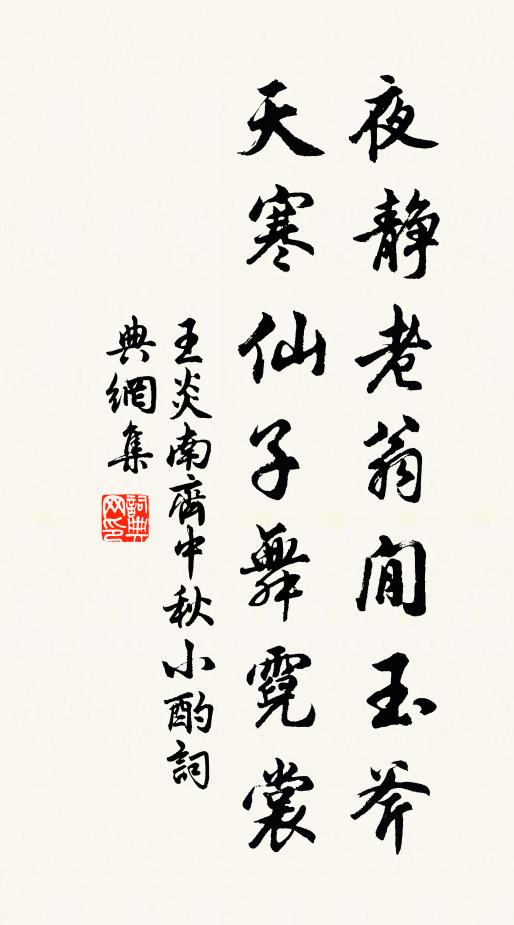 夜靜老翁閒玉斧
天寒仙子舞霓裳
王炎南齊中秋小酌詞
典網集
詞典网印